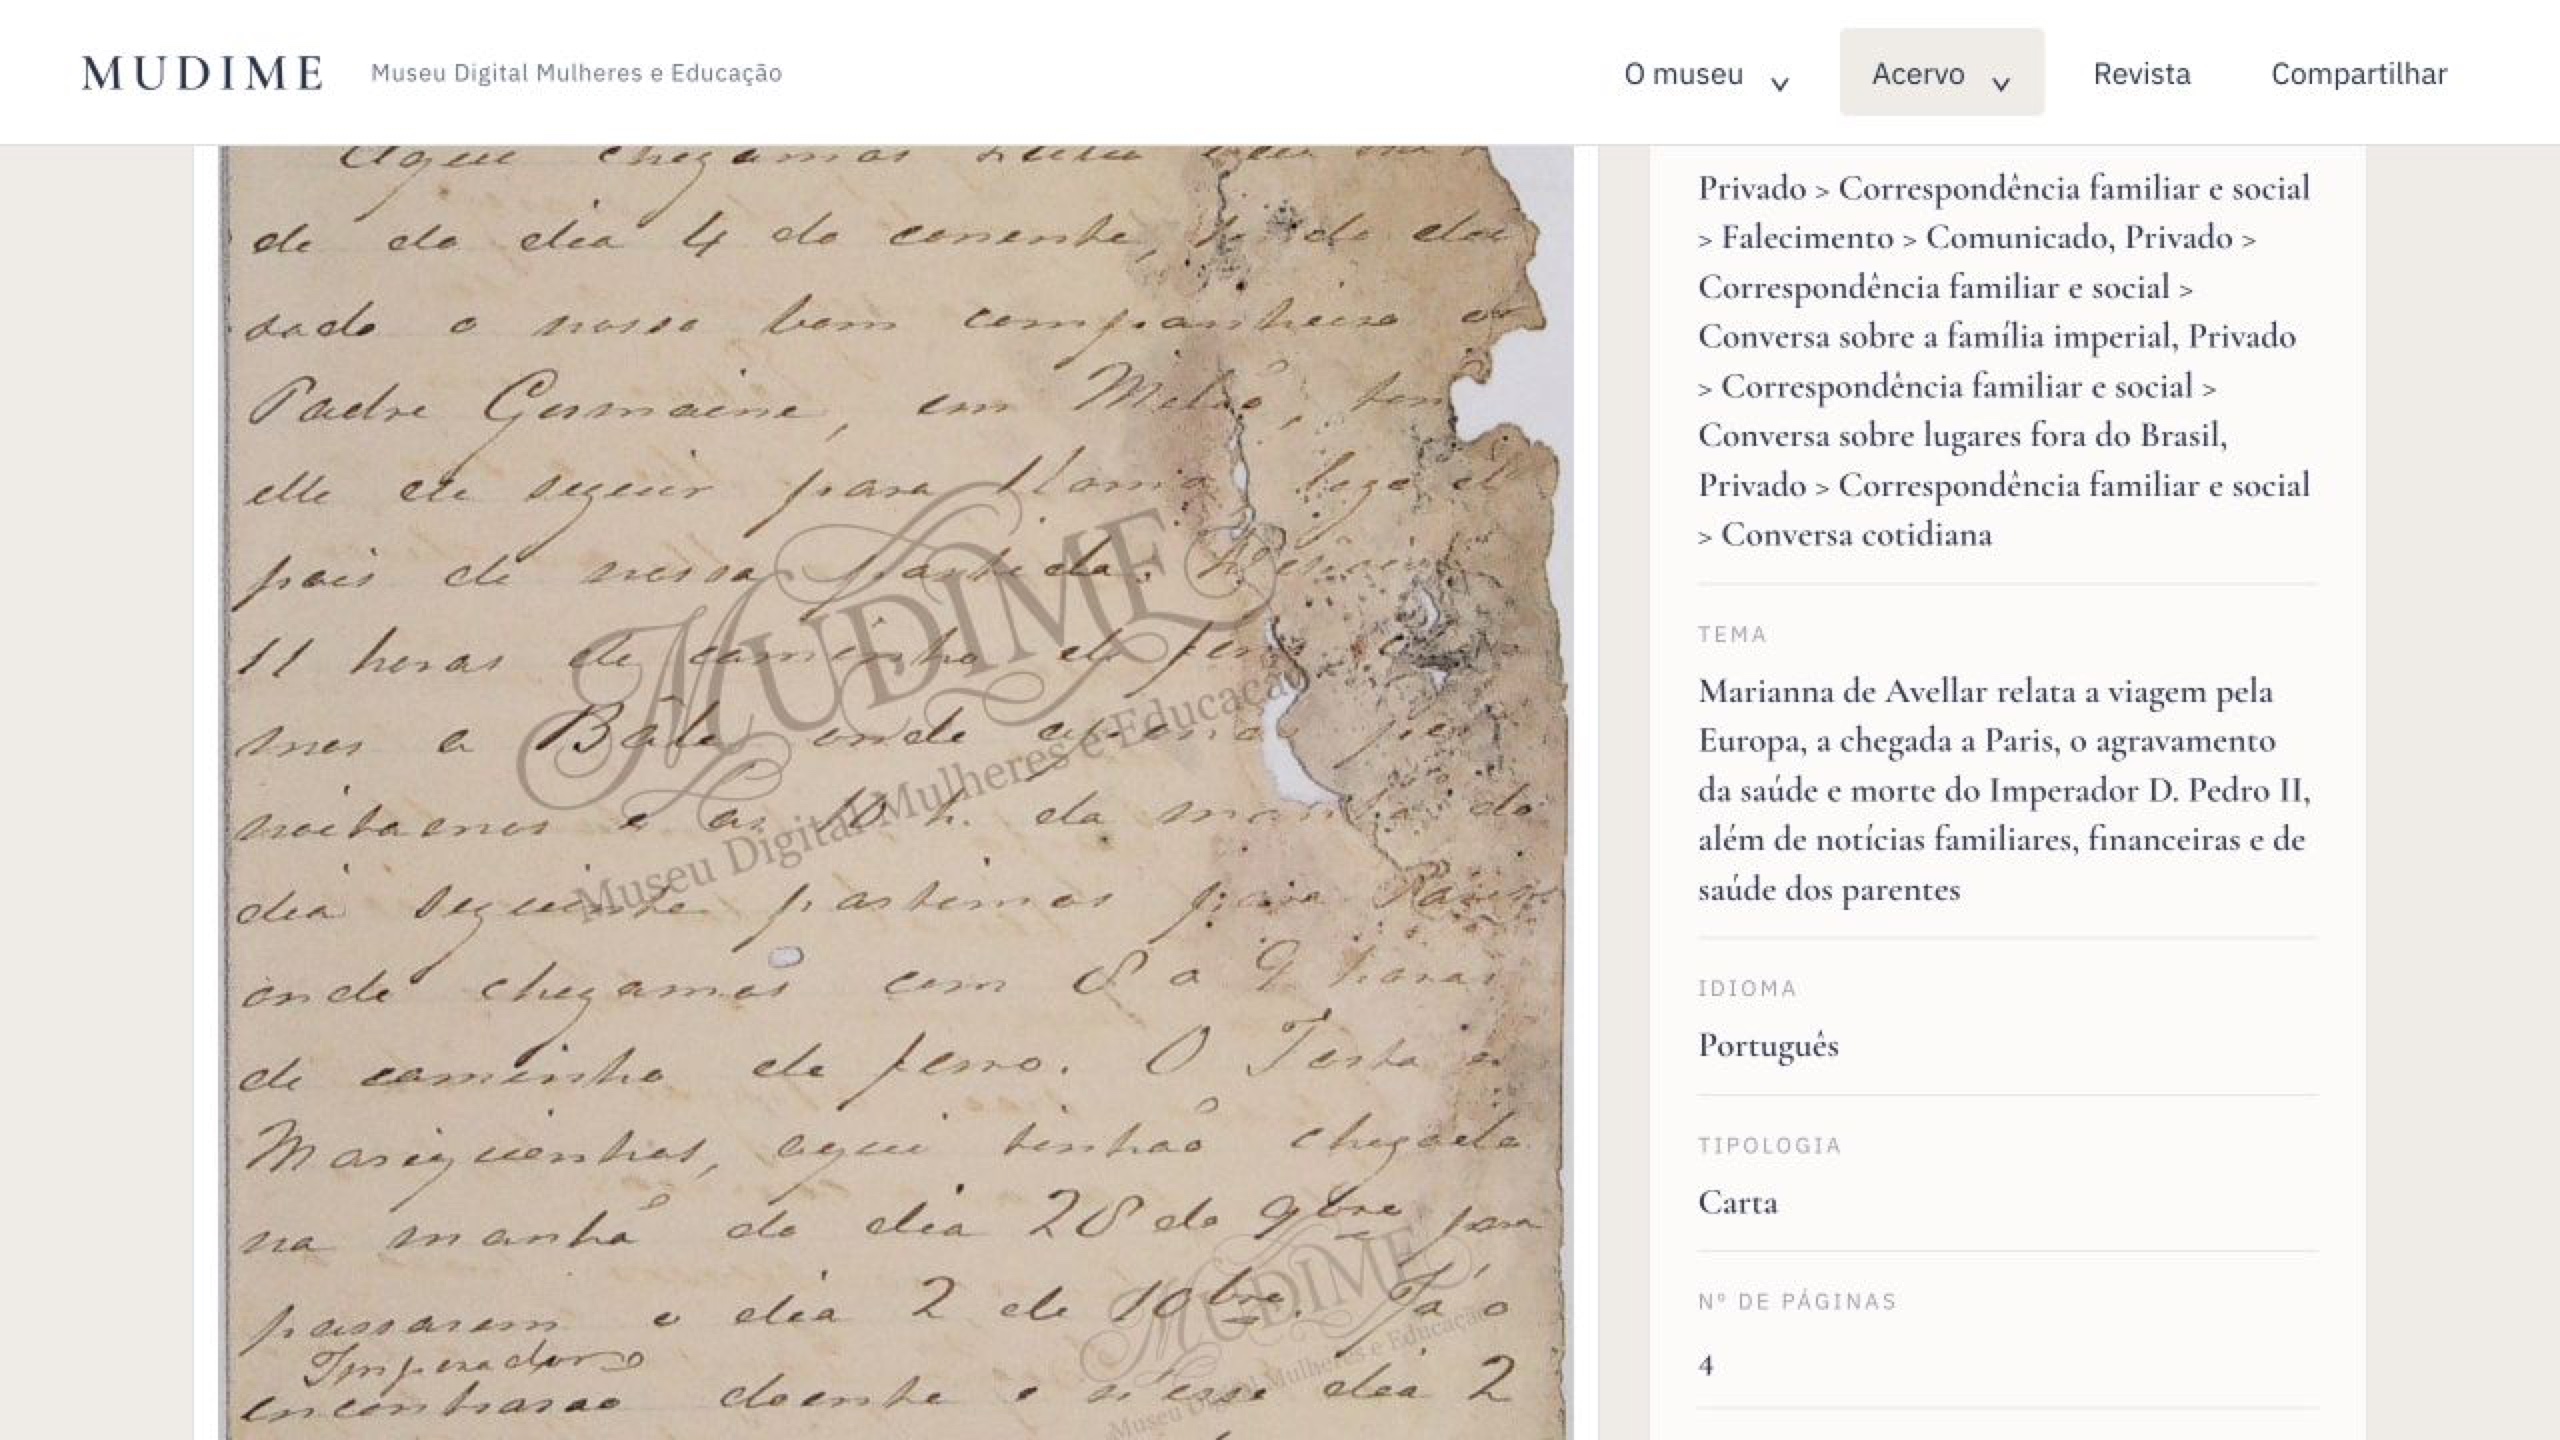 MUDIME
Museu Digital Mulheres e Educação
O museu
Acervo
Revista
Compartilhar
Aqui chegamos
de do dia 4 do corrente,
sado o nosso bom companheiro o
Padre Germaine, em Milão, ten
elle de seguir para Roma logo d
pois de nossa partida.
11 horas de caminho de fer
mos a Bâle, onde apenas per
noitamos e as 10 h. da manhã do
dia seguinte partimos para Paris
onde chegamos com 8 a 9 horas
de caminho de ferro. O Torta e
Mariquinhas, aqui tinhão chegado
na manhã do dia 28 do 9bre para
passarem o dia 2 de 10bre. Já o
Imperador
encontrarao doente e n'esse dia 2
MUDIME
Museu Digital Mulheres e Educação
MUDIME
Museu Digital Mulheres e Educação
Privado > Correspondência familiar e social
> Falecimento > Comunicado, Privado >
Correspondência familiar e social >
Conversa sobre a família imperial, Privado
> Correspondência familiar e social >
Conversa sobre lugares fora do Brasil,
Privado > Correspondência familiar e social
> Conversa cotidiana
TEMA
Marianna de Avellar relata a viagem pela
Europa, a chegada a Paris, o agravamento
da saúde e morte do Imperador D. Pedro II,
além de notícias familiares, financeiras e de
saúde dos parentes
IDIOMA
Português
TIPOLOGIA
Carta
Nº DE PÁGINAS
4